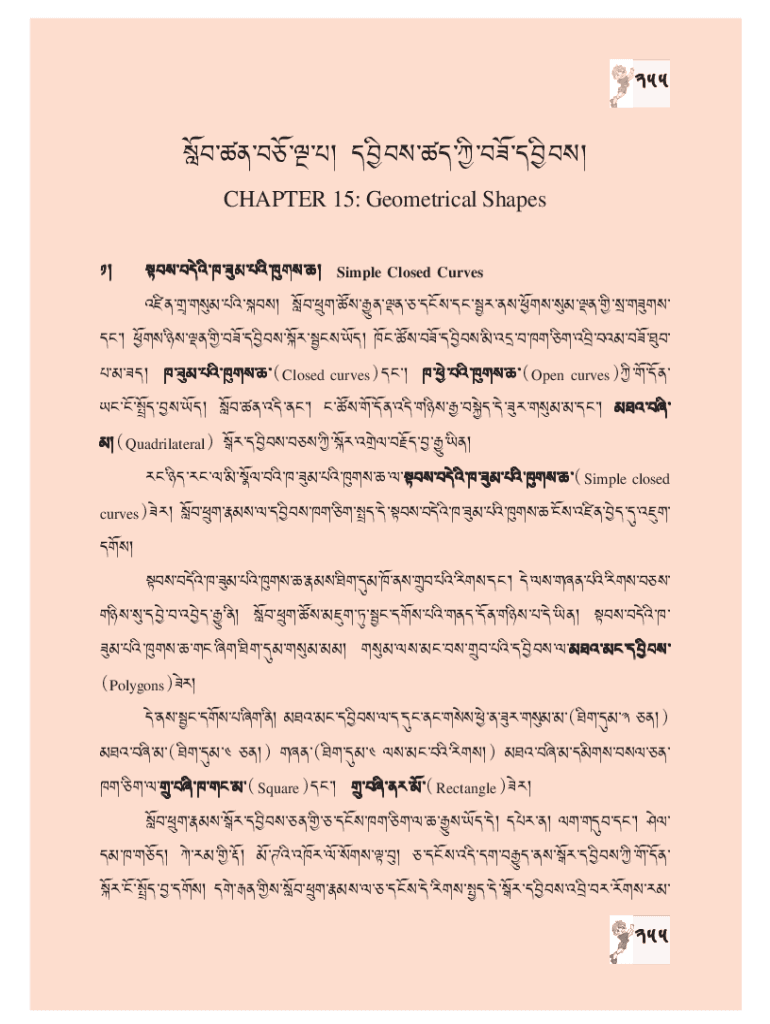 ༢༥༥
སློབ་ཚན་བཅོ་ལྔ་པ། དབྱིབས་ཚད་ཀྱི་བཟོ་དབྱིབས།
CHAPTER 15: Geometrical Shapes
༡། སྟབས་བདེའི་ཁ་ཟུམ་པའི་ཁུགས་ཆ། Simple Closed Curves
འཛིན་གྲྭ་གསུམ་པའི་སྐབས། སློབ་ཕྲུག་ཚོས་རྒྱུན་ལྡན་ཅ་དངོས་དང་སྦྱར་ནས་ཕྱོགས་སུམ་ལྡན་གྱི་སྲ་གཟུགས་
དང་། ཕྱོགས་ཉིས་ལྡན་གྱི་བཟོ་དབྱིབས་སྐོར་སྦྱངས་ཡོད། ཁོང་ཚོས་བཟོ་དབྱིབས་མི་འདྲ་བ་ཁག་ཅིག་འབྲི་བའམ་བཟོ་ཐུབ་
པ་མ་ཟད། ཁ་ཟུམ་པའི་ཁུགས་ཆ་(Closed curves)དང་། ཁ་ཕྱེ་བའི་ཁུགས་ཆ་(Open curves)ཀྱི་གོ་དོན་
ཡང་ངོ་སྤྲོད་བྱས་ཡོད། སློབ་ཚན་འདི་ནང་། ང་ཚོས་གོ་དོན་འདི་གཉིས་རྒྱ་བསྐྱེད་དེ་ཟུར་གསུམ་མ་དང་། མཐའ་བཞི་
མ།(Quadrilateral) སྒོར་དབྱིབས་བཅས་ཀྱི་སྐོར་འགྲེལ་བརྗོད་བྱ་རྒྱུ་ཡིན།
རང་ཉིད་རང་ལ་མི་སྣོལ་བའི་ཁ་ཟུམ་པའི་ཁུགས་ཆ་ལ་སྟབས་བདེའི་ཁ་ཟུམ་པའི་ཁུགས་ཆ་(Simple closed
curves)ཟེར། སློབ་ཕྲུག་རྣམས་ལ་དབྱིབས་ཁག་ཅིག་སྤྲད་དེ་སྟབས་བདེའི་ཁ་ཟུམ་པའི་ཁུགས་ཆ་ངོས་འཛིན་བྱེད་དུ་འཇུག་
དགོས།
སྟབས་བདེའི་ཁ་ཟུམ་པའི་ཁུགས་ཆ་རྣམས་ཐིག་དུམ་ཁོ་ནས་གྲུབ་པའི་རིགས་དང་། དེ་ལས་གཞན་པའི་རིགས་བཅས་
གཉིས་སུ་དབྱེ་བ་འབྱེད་རྒྱུ་ནི། སློབ་ཕྲུག་ཚོས་མཇུག་ཏུ་སྦྱང་དགོས་པའི་གནད་དོན་གཉིས་པ་དེ་ཡིན། སྟབས་བདེའི་ཁ་
ཟུམ་པའི་ཁུགས་ཆ་གང་ཞིག་ཐིག་དུམ་གསུམ་མམ། གསུམ་ལས་མང་བས་གྲུབ་པའི་དབྱིབས་ལ་མཐའ་མང་དབྱིབས་
(Polygons)ཟེར།
དེ་ནས་སྦྱང་དགོས་པ་ཞིག་ནི། མཐའ་མང་དབྱིབས་ལ་ད་དུང་ནང་གསེས་ཕྱེ་ན་ཟུར་གསུམ་མ་(ཐིག་དུམ་༣ ཅན།)
མཐའ་བཞི་མ་(ཐིག་དུམ་༤ ཅན།) གཞན་(ཐིག་དུམ་༤ ལས་མང་བའི་རིགས།) མཐའ་བཞི་མ་དམིགས་བསལ་ཅན་
ཁག་ཅིག་ལ་གྲུ་བཞི་ཁ་གང་མ་(Square)དང་། གྲུ་བཞི་ནར་མོ་(Rectangle)ཟེར།
སློབ་ཕྲུག་རྣམས་སྒོར་དབྱིབས་ཅན་གྱི་ཅ་དངོས་ཁག་ཅིག་ལ་ཆ་རྒྱུས་ཡོད་དེ། དཔེར་ན། ལག་གདུབ་དང་། ཤེལ་
དམ་ཁ་གཅོད། ཀེ་རམ་གྱི་རྡོ། མོ་ཊའི་འཁོར་ལོ་སོགས་ལྟ་བུ། ཅ་དངོས་འདི་དག་བརྒྱུད་ནས་སྒོར་དབྱིབས་ཀྱི་གོ་དོན་
སྐོར་ངོ་སྤྲོད་བྱ་དགོས། དགེ་རྒན་གྱིས་སློབ་ཕྲུག་རྣམས་ལ་ཅ་དངོས་དེ་རིགས་སྤྲད་དེ་སྒོར་དབྱིབས་འབྲི་བར་རོགས་རམ་
༢༥༥